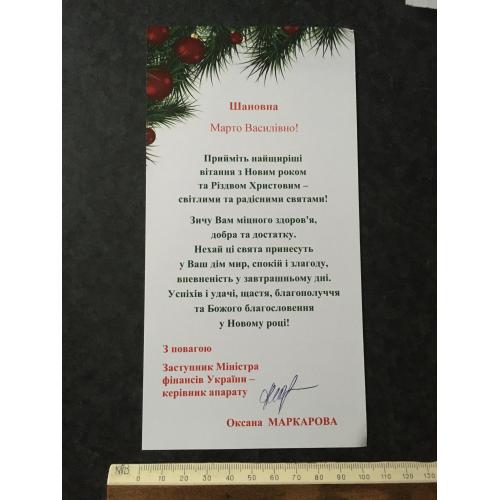 Шановна
Марто Василівно!
Прийміть найщиріші
вітання з Новим роком
та Різдвом Христовим –
світлими та радісними святами!
Зичу Вам міцного здоров'я,
добра та достатку.
Нехай ці свята принесуть
у Ваш дім мир, спокій і злагоду,
впевненість у завтрашньому дні.
Успіхів і удачі, щастя, благополуччя
та Божого благословення
у Новому році!
З повагою
Заступник Міністра
фінансів України –
керівник апарату
Оксана МАРКАРОВА
0 10 20 30 40 50 60 70 80 90 100 110 120 130